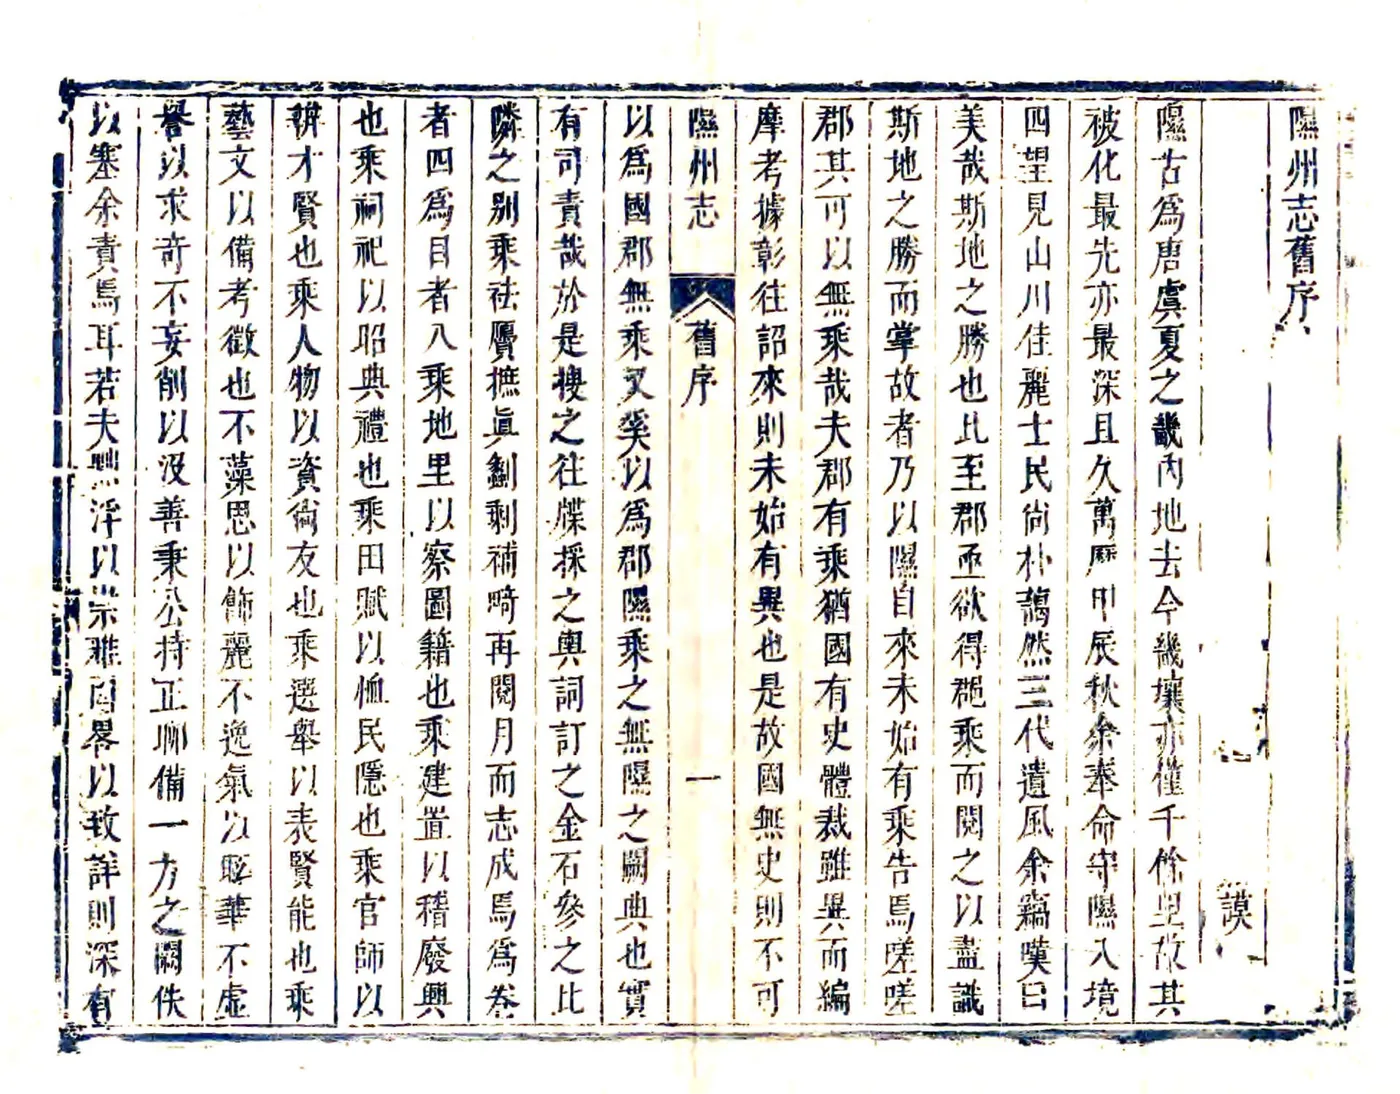 隰州志舊序
謨
隰古爲唐虞夏之畿內地去今幾壤亦僅千餘里故其
被化最先亦最深且久萬曆甲辰秋余奉命守隰入境
四望見山川佳麗士民尙朴藹然三代遺風余竊嘆曰
美哉斯地之勝也比至郡亟欲得郡乘而閱之以盡識
斯地之勝而掌故者乃以隰自來未始有乘告焉嗟嗟
郡其可以無乘哉夫郡有乘猶國有史體裁雖異而編
摩考據彰往詔來則未始有異也是故國無史則不可
隰州志
舊序
一
以爲國郡無乘又奚以爲郡隰乘之無隰之闕典也實
有司責哉於是摟之往牒採之輿詞訂之金石參之比
隣之別乘袪贋摭眞劖剩補畸再閱月而志成焉爲卷
者四爲目者八乘地里以察圖籍也乘建置以稽廢興
也乘祠祀以昭典禮也乘田賦以恤民隱也乘官師以
辨才賢也乘人物以資尙友也乘選舉以表賢能也乘
藝文以備考徵也不藻思以飾麗不逸氣以騁華不虛
譽以求奇不妄削以沒善秉公持正聊備一方之闕佚
以塞余責焉耳若夫黜浮以崇雅自畧以致詳則深有